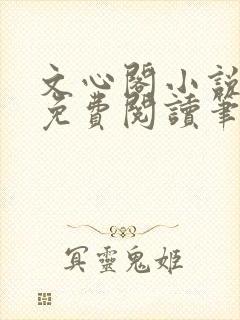 文心閣小說
免費閱讀筆
冥靈鬼姬